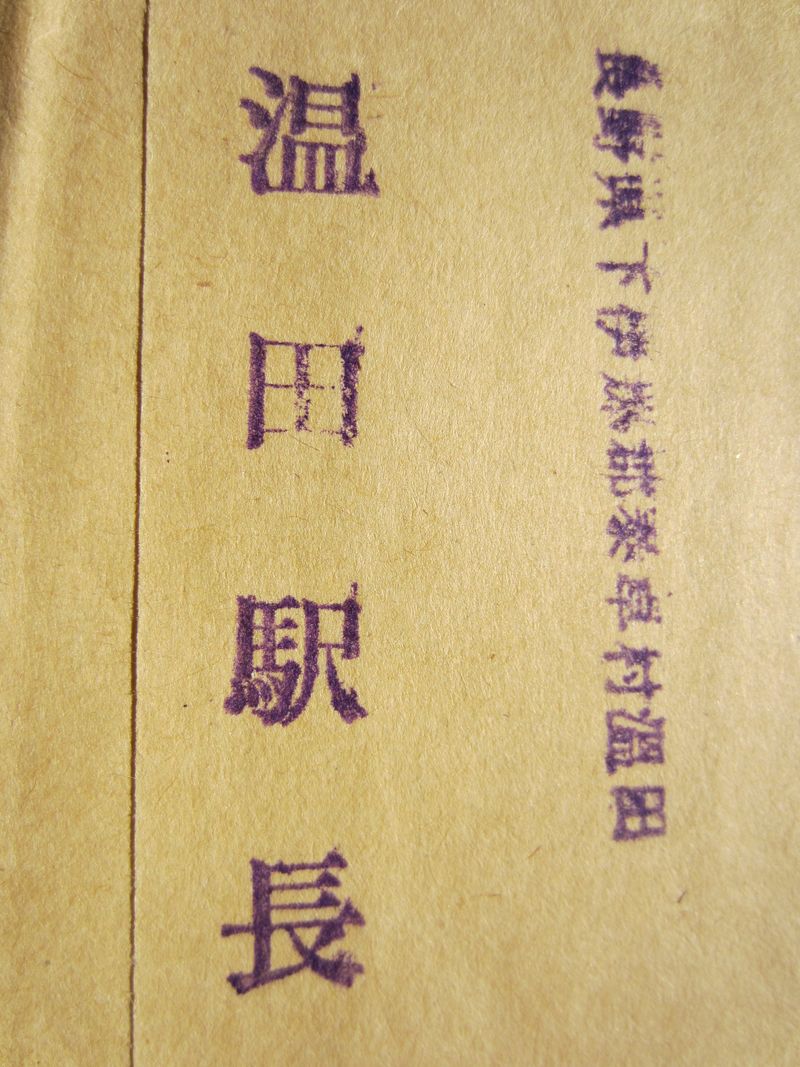 長野県下伊那郡泰阜村温田
温田駅長